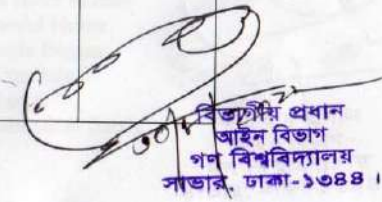 বিভাগীয় প্রধান
আইন বিভাগ
গণ বিশ্ববিদ্যালয়
সাভার, ঢাকা-১৩৪৪ ।